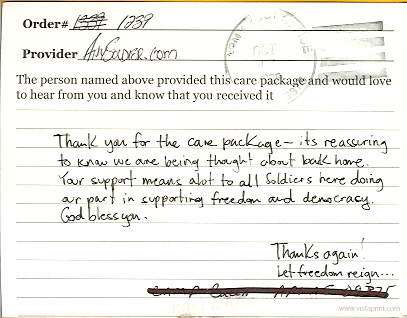 Order# 1337 1239
Provider AnySoldier.com
The person named above provided this care package and would love
to hear from you and know that you received it
Thank you for the care package - its reassuring
to know we are being thought about back home.
Your support means alot to all Soldiers here doing
our part in supporting freedom and democracy.
God bless you.
Thanks again!
Let freedom reign...
www.vistaprint.com